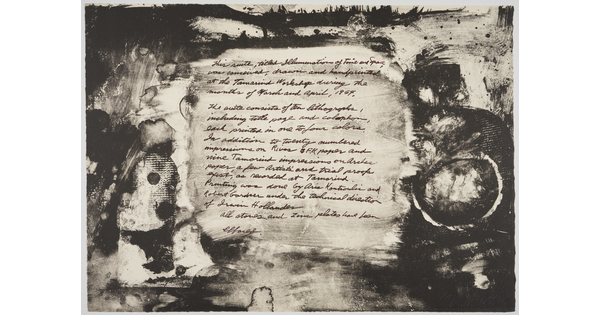 This suite, titled Illuminations of Time and Space,
was conceived, drawn and handprinted
at the Tamarind Workshop during the
months of March and April, 1964.
The suite consists of ten lithographs,
including title page and colophon,
each printed in one to four colors.
In addition to twenty numbered
impressions on Rives BFK paper and
nine Tamarind impressions on Arches
paper a few Artist's and trial proofs
exist as recorded at Tamarind
Printing was done by and
Robert Gardner under the technical direction
of Irwin Hollander
all stones and zinc plates have been